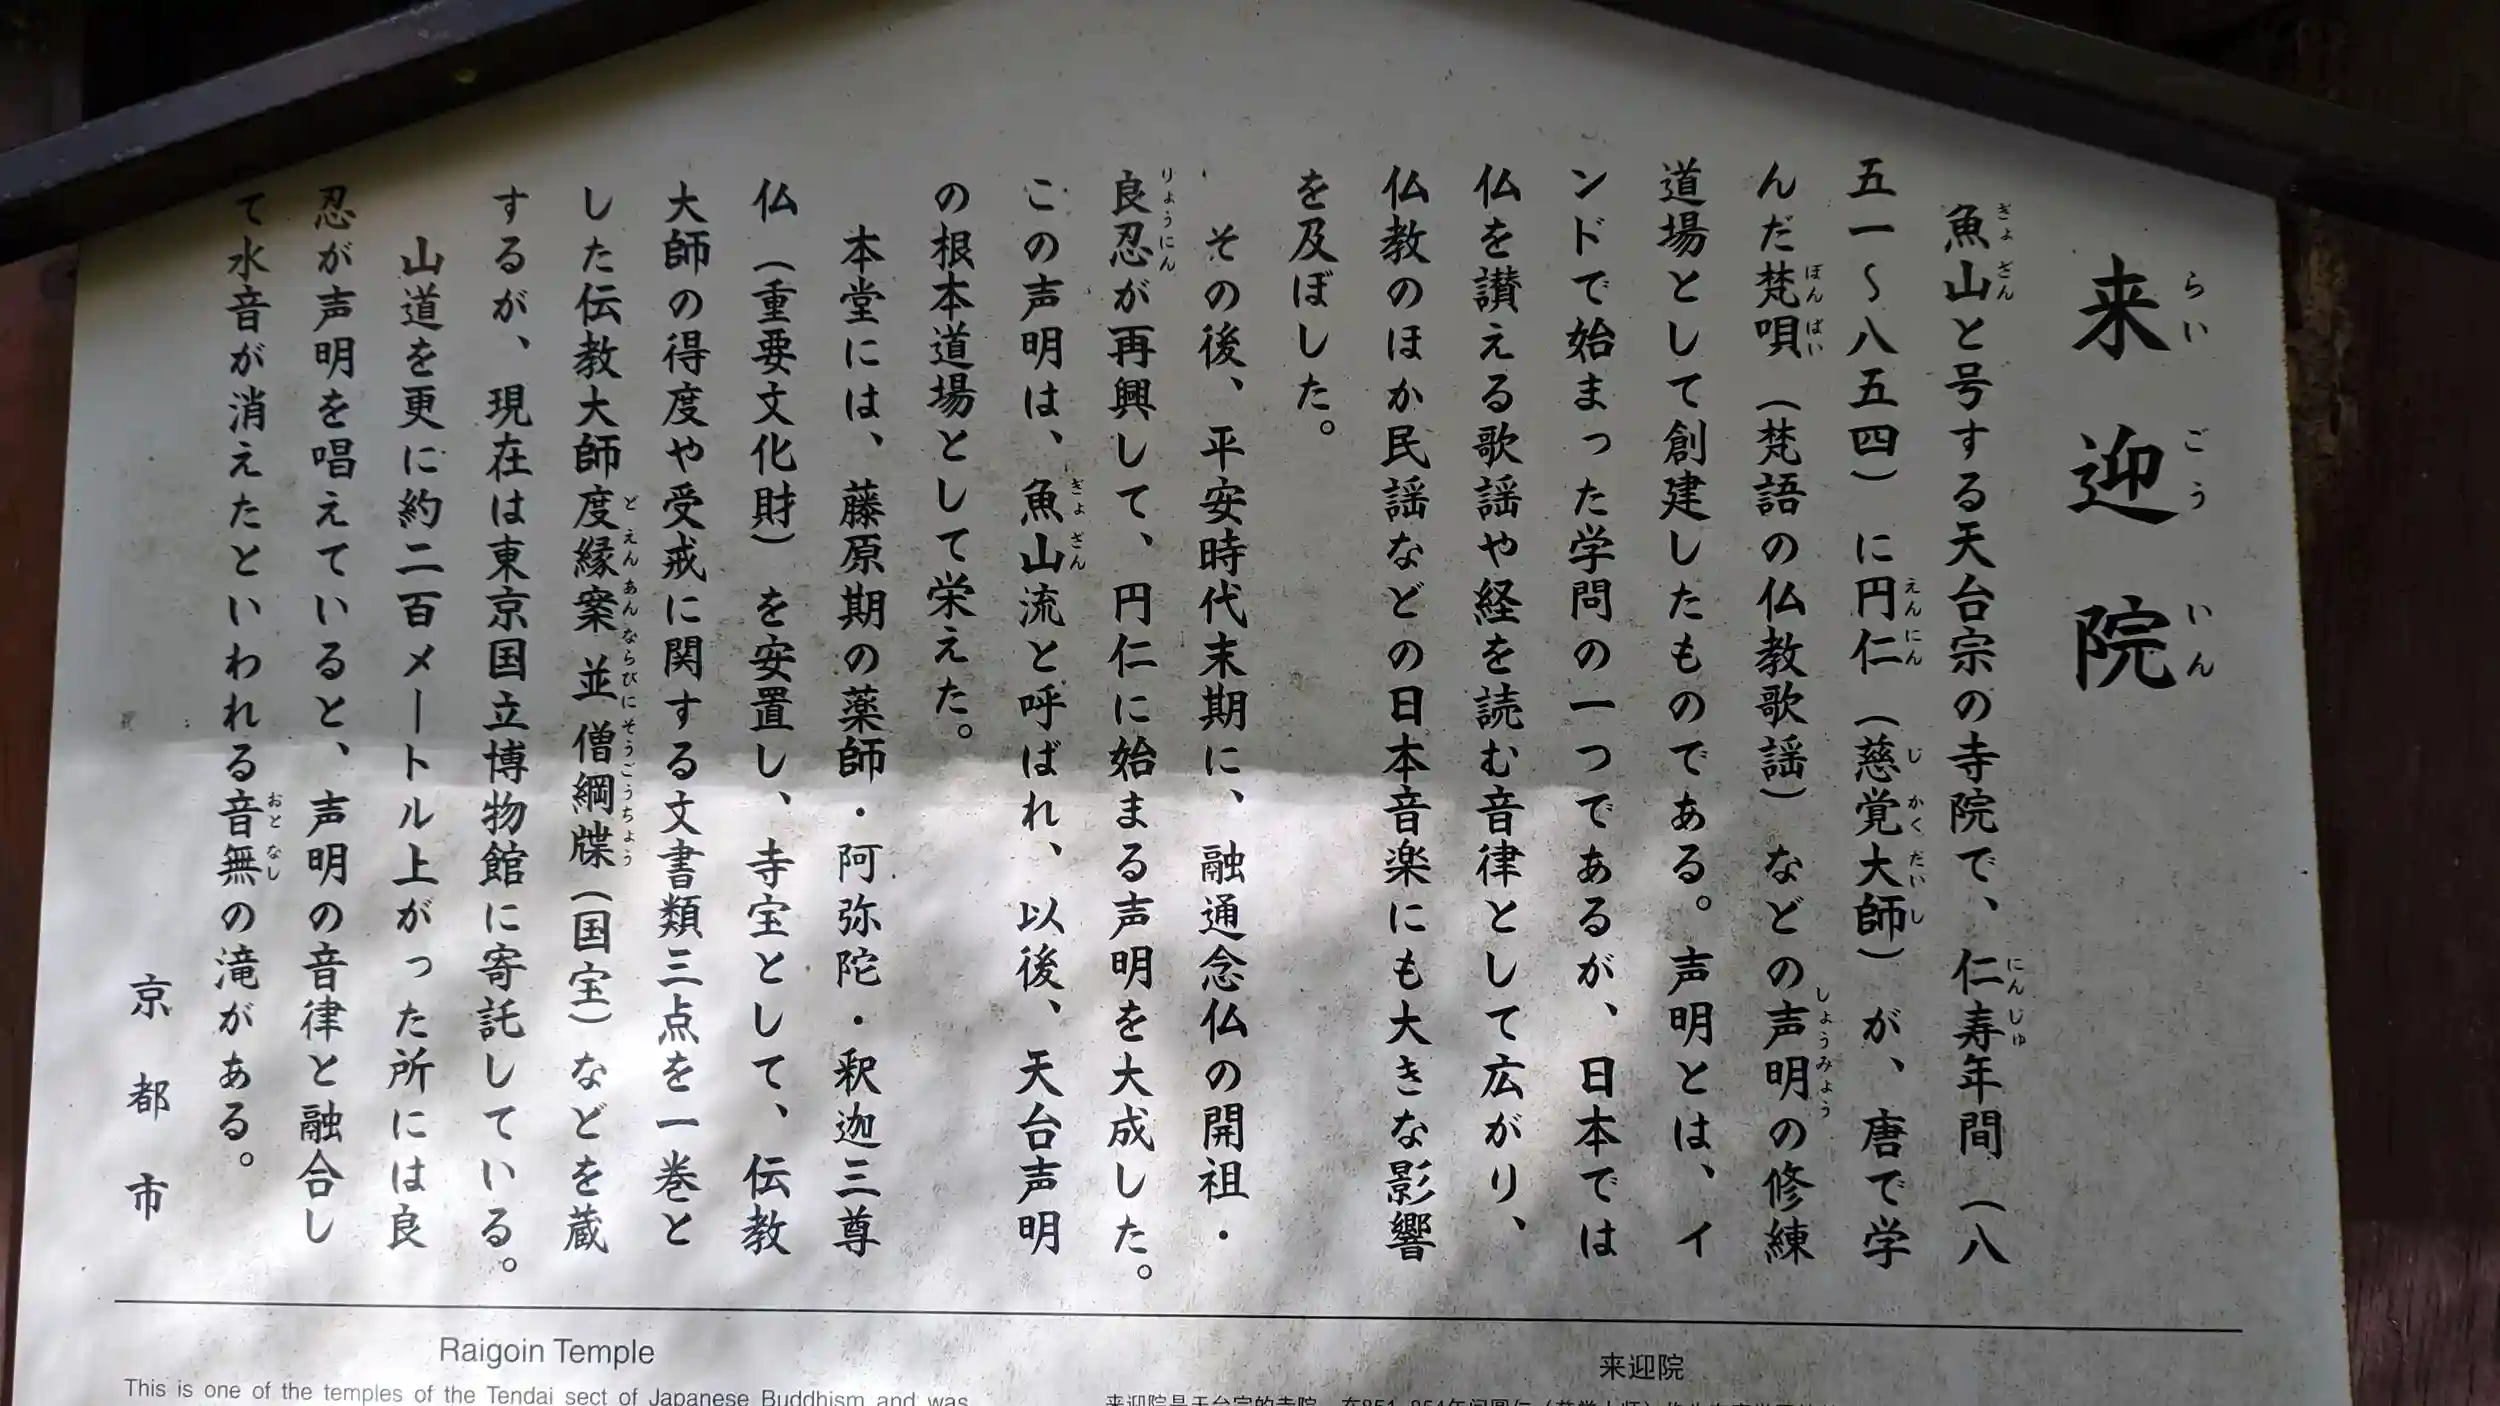 来迎院
らいごういん
魚山と号する天台宗の寺院で、仁寿年間（八
ぎょざん
にんじゅ
五一〜八五四）に円仁（慈覚大師）が、唐で学
えんにん
じかくだいし
んだ梵唄（梵語の仏教歌謡）などの声明の修練
ぼんばい
しょうみょう
道場として創建したものである。声明とは、イ
ンドで始まった学問の一つであるが、日本では
仏を讃える歌謡や経を読む音律として広がり、
仏教のほか民謡などの日本音楽にも大きな影響
を及ぼした。
その後、平安時代末期に、融通念仏の開祖・
良忍が再興して、円仁に始まる声明を大成した。
りょうにん
この声明は、魚山流と呼ばれ、以後、天台声明
ぎょざん
の根本道場として栄えた。
本堂には、藤原期の薬師・阿弥陀・釈迦三尊
仏（重要文化財）を安置し、寺宝として、伝教
大師の得度や受戒に関する文書類三点を一巻と
した伝教大師度縁案並僧綱牒（国宝）などを蔵
どえんあんならびにそうごうちょう
するが、現在は東京国立博物館に寄託している。
山道を更に約二百メートル上がった所には良
忍が声明を唱えていると、声明の音律と融合し
て水音が消えたといわれる音無の滝がある。
おとなし
京都市
Raigoin Temple
This is one of the temples of the Tendai sect of Japanese Buddhism and was
来迎院
来迎院是天台宗的寺院，在851-854年间圆仁（慈觉大师）